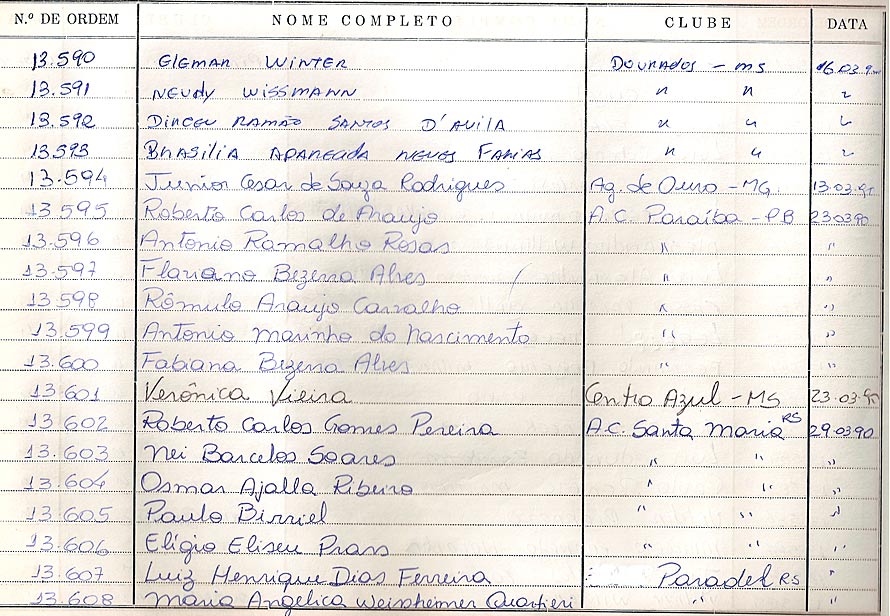 N.º DE ORDEM NOME COMPLETO CLUBE DATA
13.590 ELEMAR WINTER DOURADOS - MS 16.03.90
13.591 NEUDY WISSMANN " " "
13.592 DIRCEU RAMÃO SANTOS D'AVILA " " "
13.593 BRASILIA APARECIDA NEVES FARIAS " " "
13.594 Junior Cesar de Souza Rodrigues Ag. de Ouro - MG. 13.03.90
13.595 Roberto Carlos de Araujo A.C. Paraíba - PB 23.03.90
13.596 Antonio Ramalho Rosas " "
13.597 Flaviano Bezerra Alves " "
13.598 Rômulo Araujo Carvalho " "
13.599 Antonio marinho do nascimento " "
13.600 Fabiana Bezerra Alves " "
13.601 Verônica Vieira Centro Azul - MS 23.03.90
13.602 Roberto Carlos Gomes Pereira A.C. Santa Maria RS 29.03.90
13.603 Nei Barcelos Soares " " "
13.604 Osmar Ajalla Ribeiro " " "
13.605 Paulo Birriel " " "
13.606 Elígio Eliseu Prass " " "
13.607 Luiz Henrique Dias Ferreira Paradel RS "
13.608 Maria Angelica Weinsheimer " "